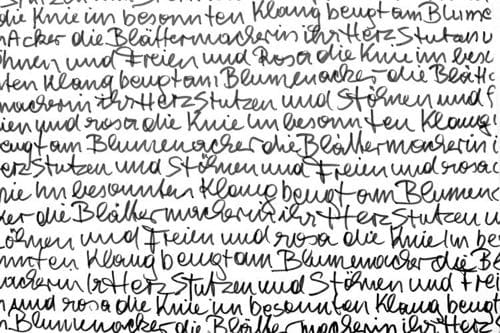 die Knie im besonnten Klang beugt am Blume
nAcker die Blättermacherin ihr Herz Stutzen u
öhnen und Freien und Rosa die Knie im bes
ten Klang beugt am Blumenacker die Blätt
macherin ihr Herz Stutzen und Stöhnen und f
eien und rosa die Knie im besonnten Klang
eugt am Blumenacker die Blättermacherin i
erz Stutzen und Stöhnen und Freien und rosa
nie im besonnten Klang beugt am Blumena
ker die Blättermacherin ihr Herz Stutzen u
töhnen und Freien und rosa die Knie im be
nnten Klang beugt am Blumenacker die Bl
acherin ihr Herz Stutzen und Stöhnen und Frei
n und rosa die Knie im besonnten Klang beug
m Blumenacker die Blättermacherin ihr Herz